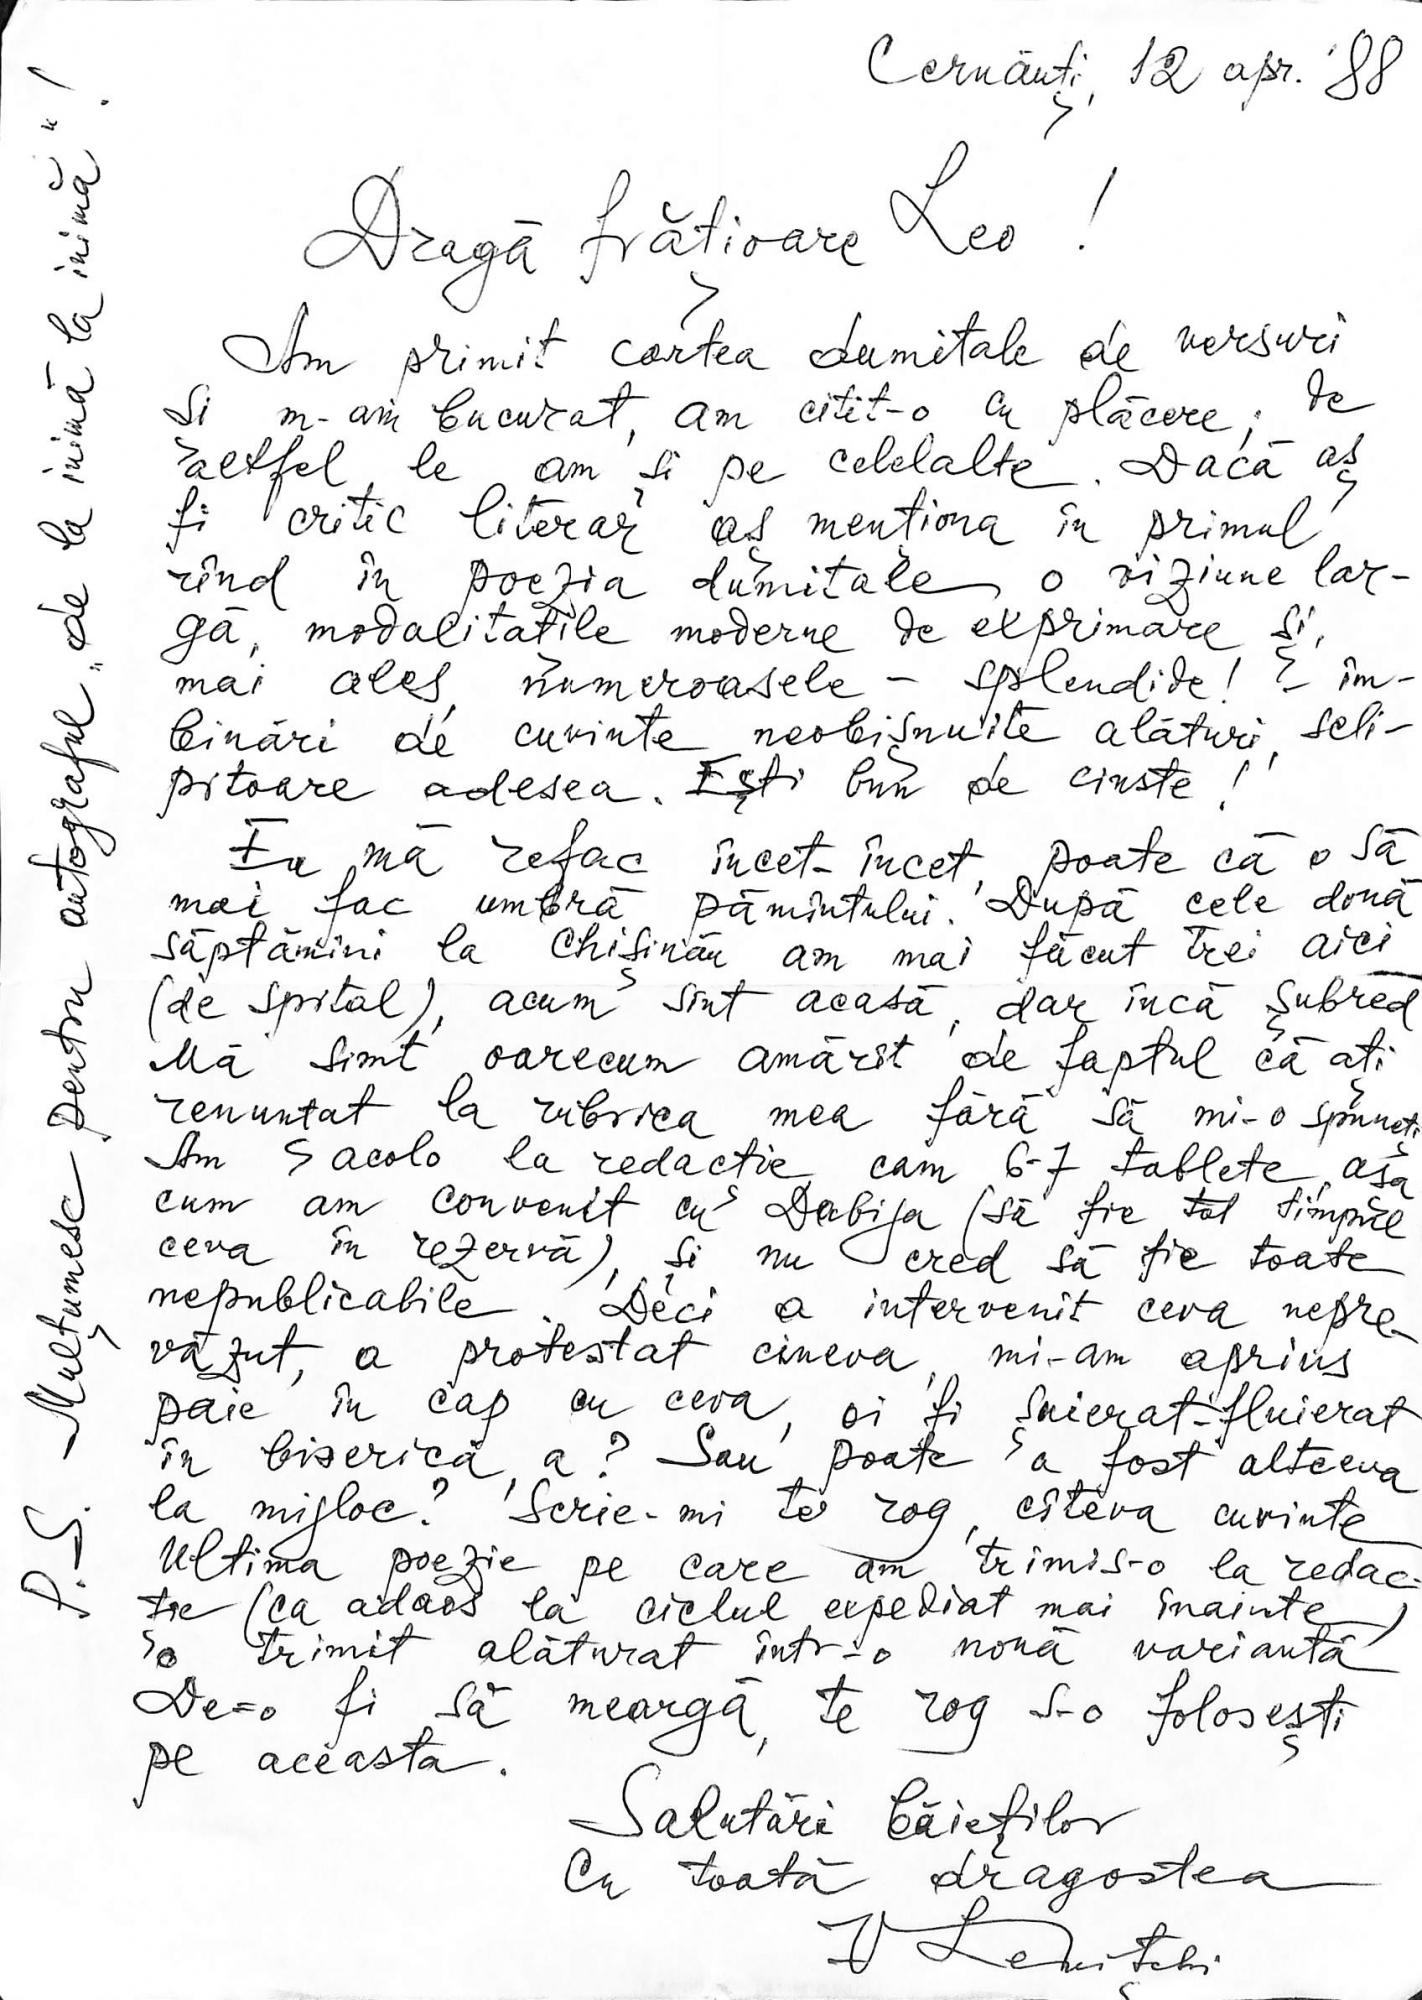 Cernăuți, 12 apr. '88
Dragă frățioare Leo!
Am primit cartea dumitale de versuri
și m-am bucurat, am citit-o cu plăcere; de
altfel le am și pe celelalte. Dacă aș
fi critic literar aș menționa în primul
rînd în poezia dumitale o viziune lar-
gă, modalitățile moderne de exprimare și,
mai ales, numeroasele – splendide! – îm-
binări de cuvinte neobișnuite alături, scli-
pitoare adesea. Ești bun de cinste!
Eu mă refac încet-încet, poate că o să
mai fac umbră pămîntului. După cele două
săptămîni la Chișinău am mai făcut trei aici
(de spital), acum sînt acasă, dar încă șubred
Mă simt oarecum amărît de faptul că ați
renunțat la rubrica mea fără să mi-o spuneți
Am acolo la redacție cam 6-7 tablete, așa
cum am convenit cu Dabija (să fie tot timpul
ceva în rezervă), și nu cred să fie toate
nepublicabile. Deci a intervenit ceva nepre-
văzut, a protestat cineva, mi-am aprins
paie în cap cu ceva, oi fi șuierat-fluierat
în biserică, a? Sau poate a fost altceva
la mijloc? Scrie-mi te rog, cîteva cuvinte
Ultima poezie pe care am trimis-o la redac-
ție (ca adaos la ciclul expediat mai înainte)
o trimit alăturat într-o nouă variantă
De-o fi să meargă, te rog s-o folosești
pe aceasta.
Salutări băieților
Cu toată dragostea
V Levițchi
P.S. Mulțumesc pentru autograful „de la inimă la inimă"!